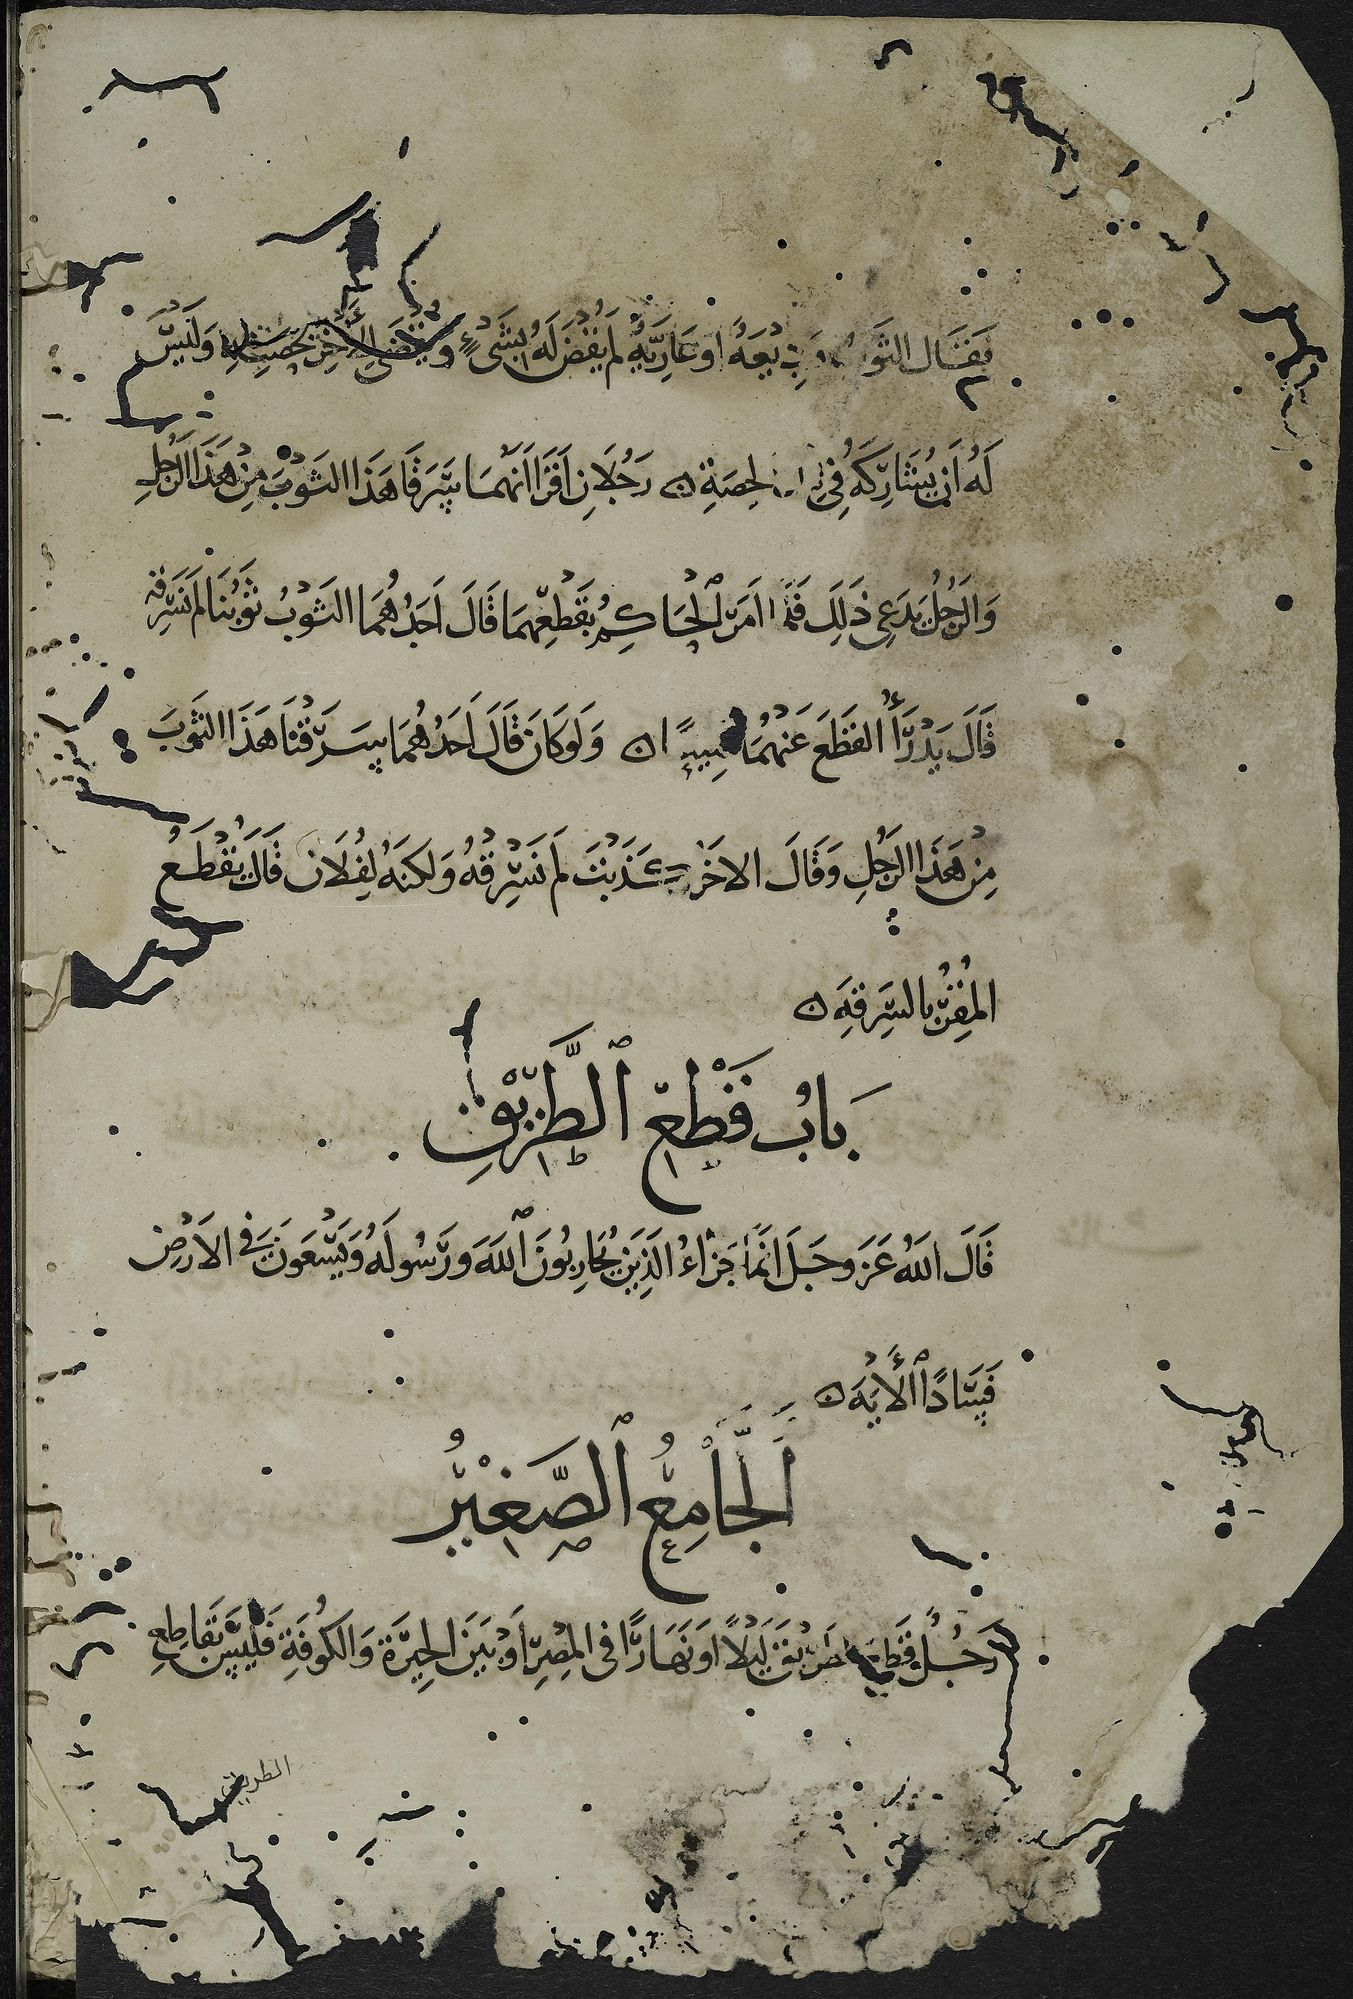 فَقَال الثَوب وَدِيعَةٌ اَو عَارِيَةٌ لَم يُقْضَ لَهُ بِشَىْءٍ وَيُقْضَى لِلْآخَرِ بِحِصَتِهِ وَلَيسَ
لَهُ اَن يُشَارِكَهُ فِى الحِصَةِ ن رَجُلَانِ اَقَرَا اَنَهُمَا سَرَقَا هَذَا الثَوْبَ مِنْ هَذَا الرَجُلِ
وَالرَجُلُ يَدَعِى ذَلِكَ فَلَمَا اَمَرَ ٱلْحَاكِمُ بِقَطْعِهِمَا قَالَ اَحَدُهُمَا الثَوْبُ ثَوْبُنَا لَم نَسْرِقْهُ
قَالَ يَدْرَأُ القَطْعَ عَنْهُمَا جَمِيعًا ن وَلَو كَانَ قَالَ اَحَدُهُمَا سَرَقْنَا هَذَا الثَوبَ
مِنْ هَذَا الرَجُلِ وَقَالَ الاخَرُ كَذَبْتَ لَم نَسْرِقْهُ وَلَكِنَهُ لِفُلَان قَالَ يُقْطَعُ
المُقِرُّ بِالسَرِقَةِ ن
بَابُ قَطْعِ ٱلطَّرِيْقِ
قَالَ اللَهُ عَزَ وَجَلَ اِنَمَا جَزَاءُ الَذِينَ يُحَارِبُونَ ٱللَهَ وَرَسُولَهُ وَيَسْعَونَ فِى الاَرْضِ
فَسَادًا ٱلْأيَةَ ن
اَلْجَامِعُ ٱلصَّغِيْرُ
رَجُلٌ قَطَعَ الطَرِيْقَ لَيْلًا اَو نَهَارًا فى المِصْرِ اَوْ بَيْنَ الحِيْرَةِ وَالكُوفَةِ فَلَيْسَ بِقَاطِعِ
الطريق